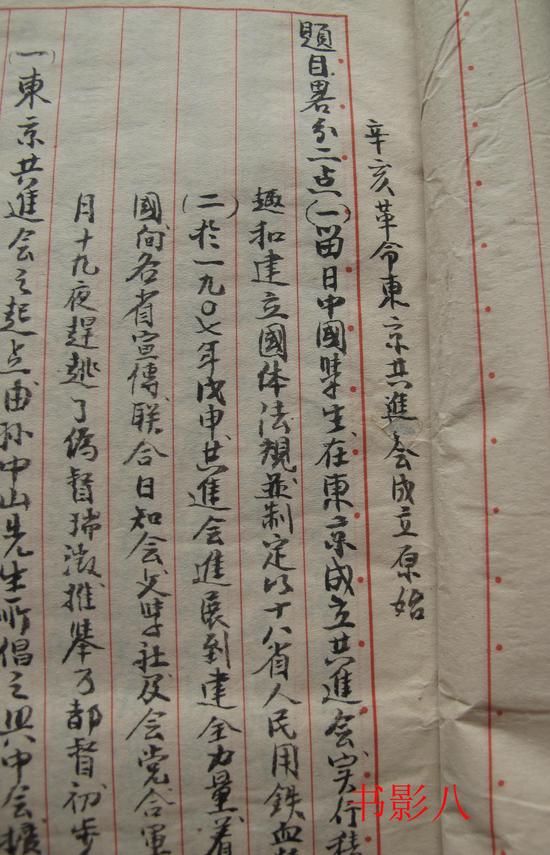 辛亥革命東京共進会成立原始
題目畧分二点(一)留日中國學生在東京成立共進会实行
趣和建立國体法規並制定以十八省人民用鉄血
(二)於一九〇七年戊申共進会進展到建全力量着
國向各省宣傳联合日知会文學社及会党合軍
月十九夜趕逃了偽督瑞澂推举了都督初步
(一)東京共進会之起点由孙中山先生所倡之興中会擴
书影八